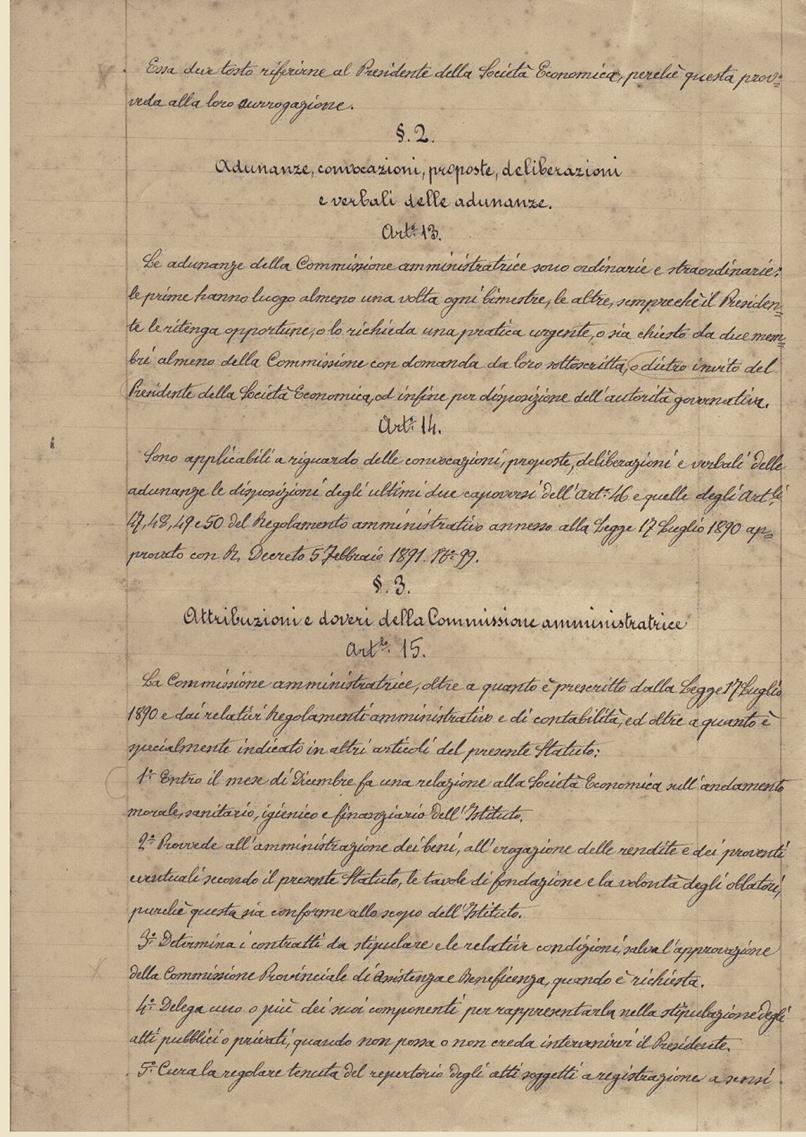 Essa deve tosto riferirne al Presidente della Società Economica, perchè questa prov-
veda alla loro surrogazione.
§. 2.
Adunanze, convocazioni, proposte, deliberazioni
e verbali delle adunanze.
Artº. 13.
Le adunanze della Commissione amministratrice sono ordinarie e straordinarie:
le prime hanno luogo almeno una volta ogni bimestre, le altre, sempreché il Presiden-
te le ritenga opportune, o lo richieda una pratica urgente, o sia chiesto da due mem-
bri almeno della Commissione con domanda da loro sottoscritta, o dietro invito del
Presidente della Società Economica, od infine per disposizione dell'autorità governativa.
Artº. 14.
Sono applicabili a riguardo delle convocazioni, proposte, deliberazioni e verbali delle
adunanze le disposizioni degli ultimi due capoversi dell'Artº. 46 e quelle degli Artⁱⁱ
47, 48, 49 e 50 del Regolamento amministrativo annesso alla Legge 17 Luglio 1890 ap-
provato con R. Decreto 5 Febbraio 1891. Nº. 99.
§. 3.
Attribuzioni e doveri della Commissione amministratrice
Artº. 15.
La Commissione amministratrice, oltre a quanto è prescritto dalla Legge 17 Luglio
1890 e dai relativi Regolamenti amministrativo e di contabilità, ed oltre a quanto è
specialmente indicato in altri articoli del presente Statuto:
1º. Entro il mese di Dicembre fa una relazione alla Società Economica sull'andamento
morale, sanitario, igienico e finanziario dell'Istituto.
2º. Provvede all'amministrazione dei beni, all'erogazione delle rendite e dei proventi
eventuali secondo il presente Statuto, le tavole di fondazione e la volontà degli oblatori,
purché questa sia conforme allo scopo dell'Istituto.
3º. Determina i contratti da stipulare e le relative condizioni, salva l'approvazione
della Commissione Provinciale di Assistenza e Beneficenza, quando è richiesta.
4º. Delega uno o più dei suoi componenti per rappresentarla nella stipulazione degli
atti pubblici o privati, quando non possa o non creda intervenirvi il Presidente.
5º. Cura la regolare tenuta del repertorio degli atti soggetti a registrazione a sensi